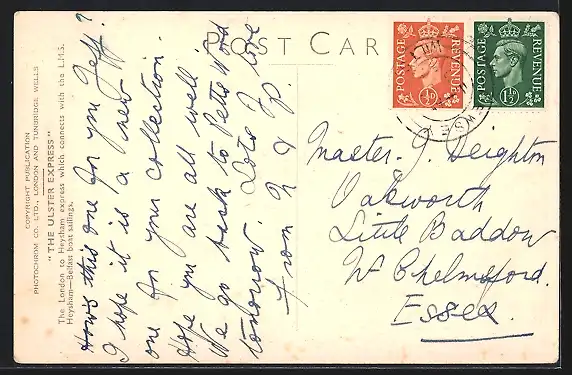 POST CARD
COPYRIGHT PUBLICATION
PHOTOCHROM CO. LTD., LONDON AND TUNBRIDGE WELLS
"THE ULSTER EXPRESS"
The London to Heysham express which connects with the L.M.S.
Heysham—Belfast boat sailings.
How's this one for you Jeff?
I hope it is a new
one for your collection.
Hope you are all well
We go back to Petts Wood
tomorrow. Lots of love
from N & P.
POSTAGE REVENUE
½D
POSTAGE REVENUE
1½D
Master. J. Deighton
Oakworth
Little Baddow
Nr Chelmsford.
Essex.